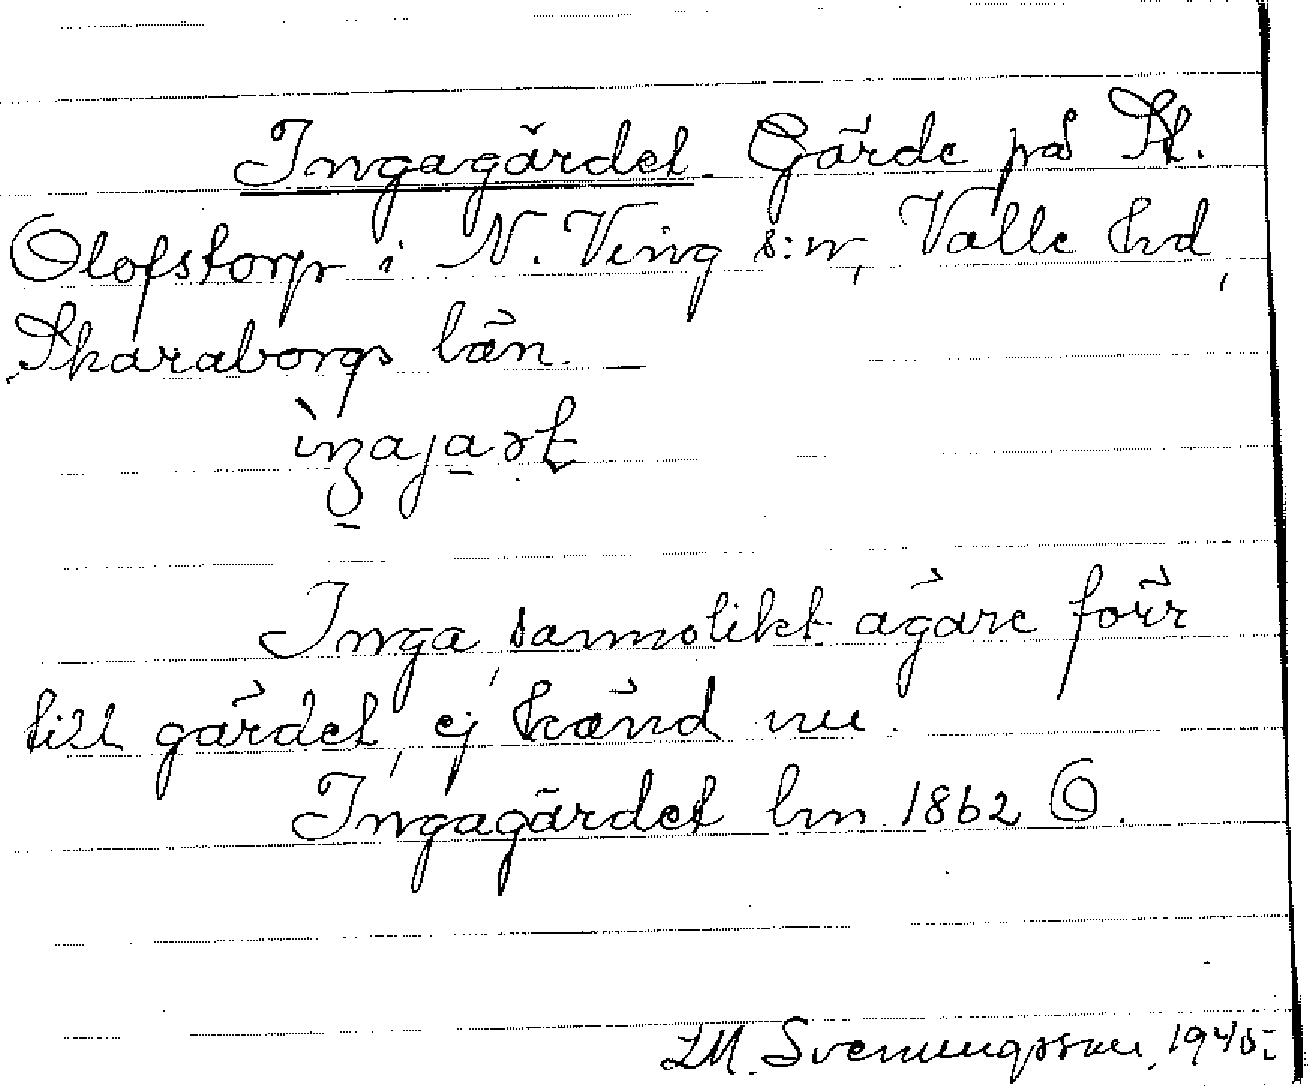 Ingagärdet. Gärde på St.
Olofstorp i N. Ving s:n, Valle hd,
Skaraborgs län.
Inga, sannolikt ägare förr
till gärdet, ej känd nu.
Ingagärdet hm 1862 O.
L.M. Svenungsson, 1945.